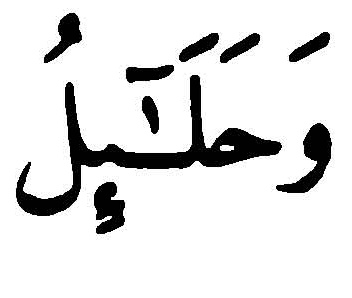 وَحَلَـٰٓئِلُ